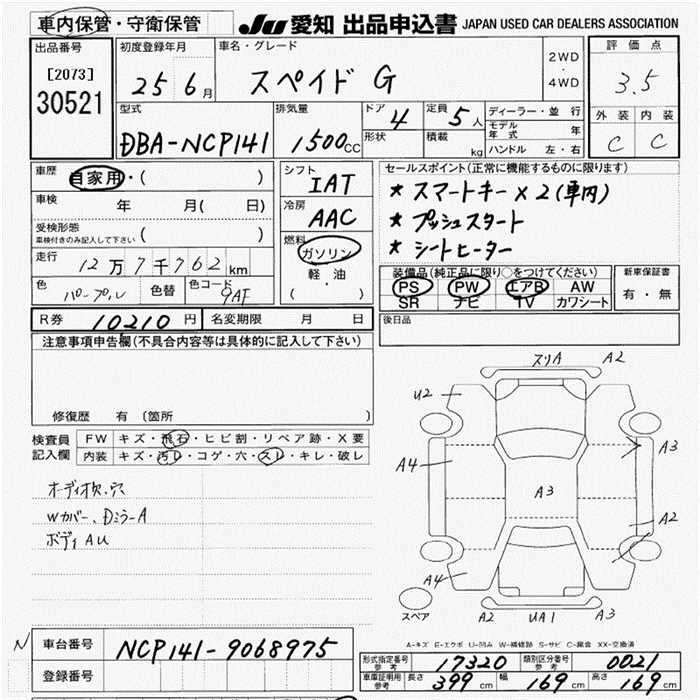 車内保管・守衛保管 JU 愛知 出品申込書 JAPAN USED CAR DEALERS ASSOCIATION
出品番号
[2073]
30521
初度登録年月
25 6月
車名・グレード
スペイド G
2WD
・
4WD
評価点
3.5
外装 内装
C C
型式
DBA-NCP141
排気量
1500CC
ドア 4
形状
定員 5人
積載 kg
ディーラー・並 行
モデル年式 年
ハンドル 左・右
車歴
自家用・( )
車検
年 月( 日)
受検形態
車検付きのみ記入して下さい ( )
走行
12万7千762km
色 パープル 色替 色コード 9AF
シフト
IAT
冷房
AAC
燃料
ガソリン
軽・油
( )
セールスポイント(正常に機能するものに限ります)
* スマートキー×2(車内)
* プッシュスタート
* シートヒーター
装備品(純正品に限り○をつけてください)
PS PW エアB AW
SR ナビ TV カワシート
新車保証書
有・無
R券 10210円 名変期限 月 日
後日品
注意事項申告欄(不具合内容等は具体的に記入して下さい)
修復歴 有 〔箇所 〕
検査員
記入欄
FW キズ・飛石・ヒビ割・リペア跡・X要
内装 キズ・汚レ・コゲ・穴・スレ・キレ・破レ
オーディオ欠.穴
Wカバー、DミラーA
ボディAU
スリA A2
U2
A3
A4
A3
A2
A4
スペア
A2 UA1 A3
A-キズ E-エクボ U-凹み W-補修跡 S-サビ C-腐食 XX-交換済
N 車台番号 NCP141-9068975
登録番号
形式指定番号 参考 17320 類別区分番号 参考 0021
車庫証明用 参考 長さ 399cm 幅 169cm 高さ 169cm